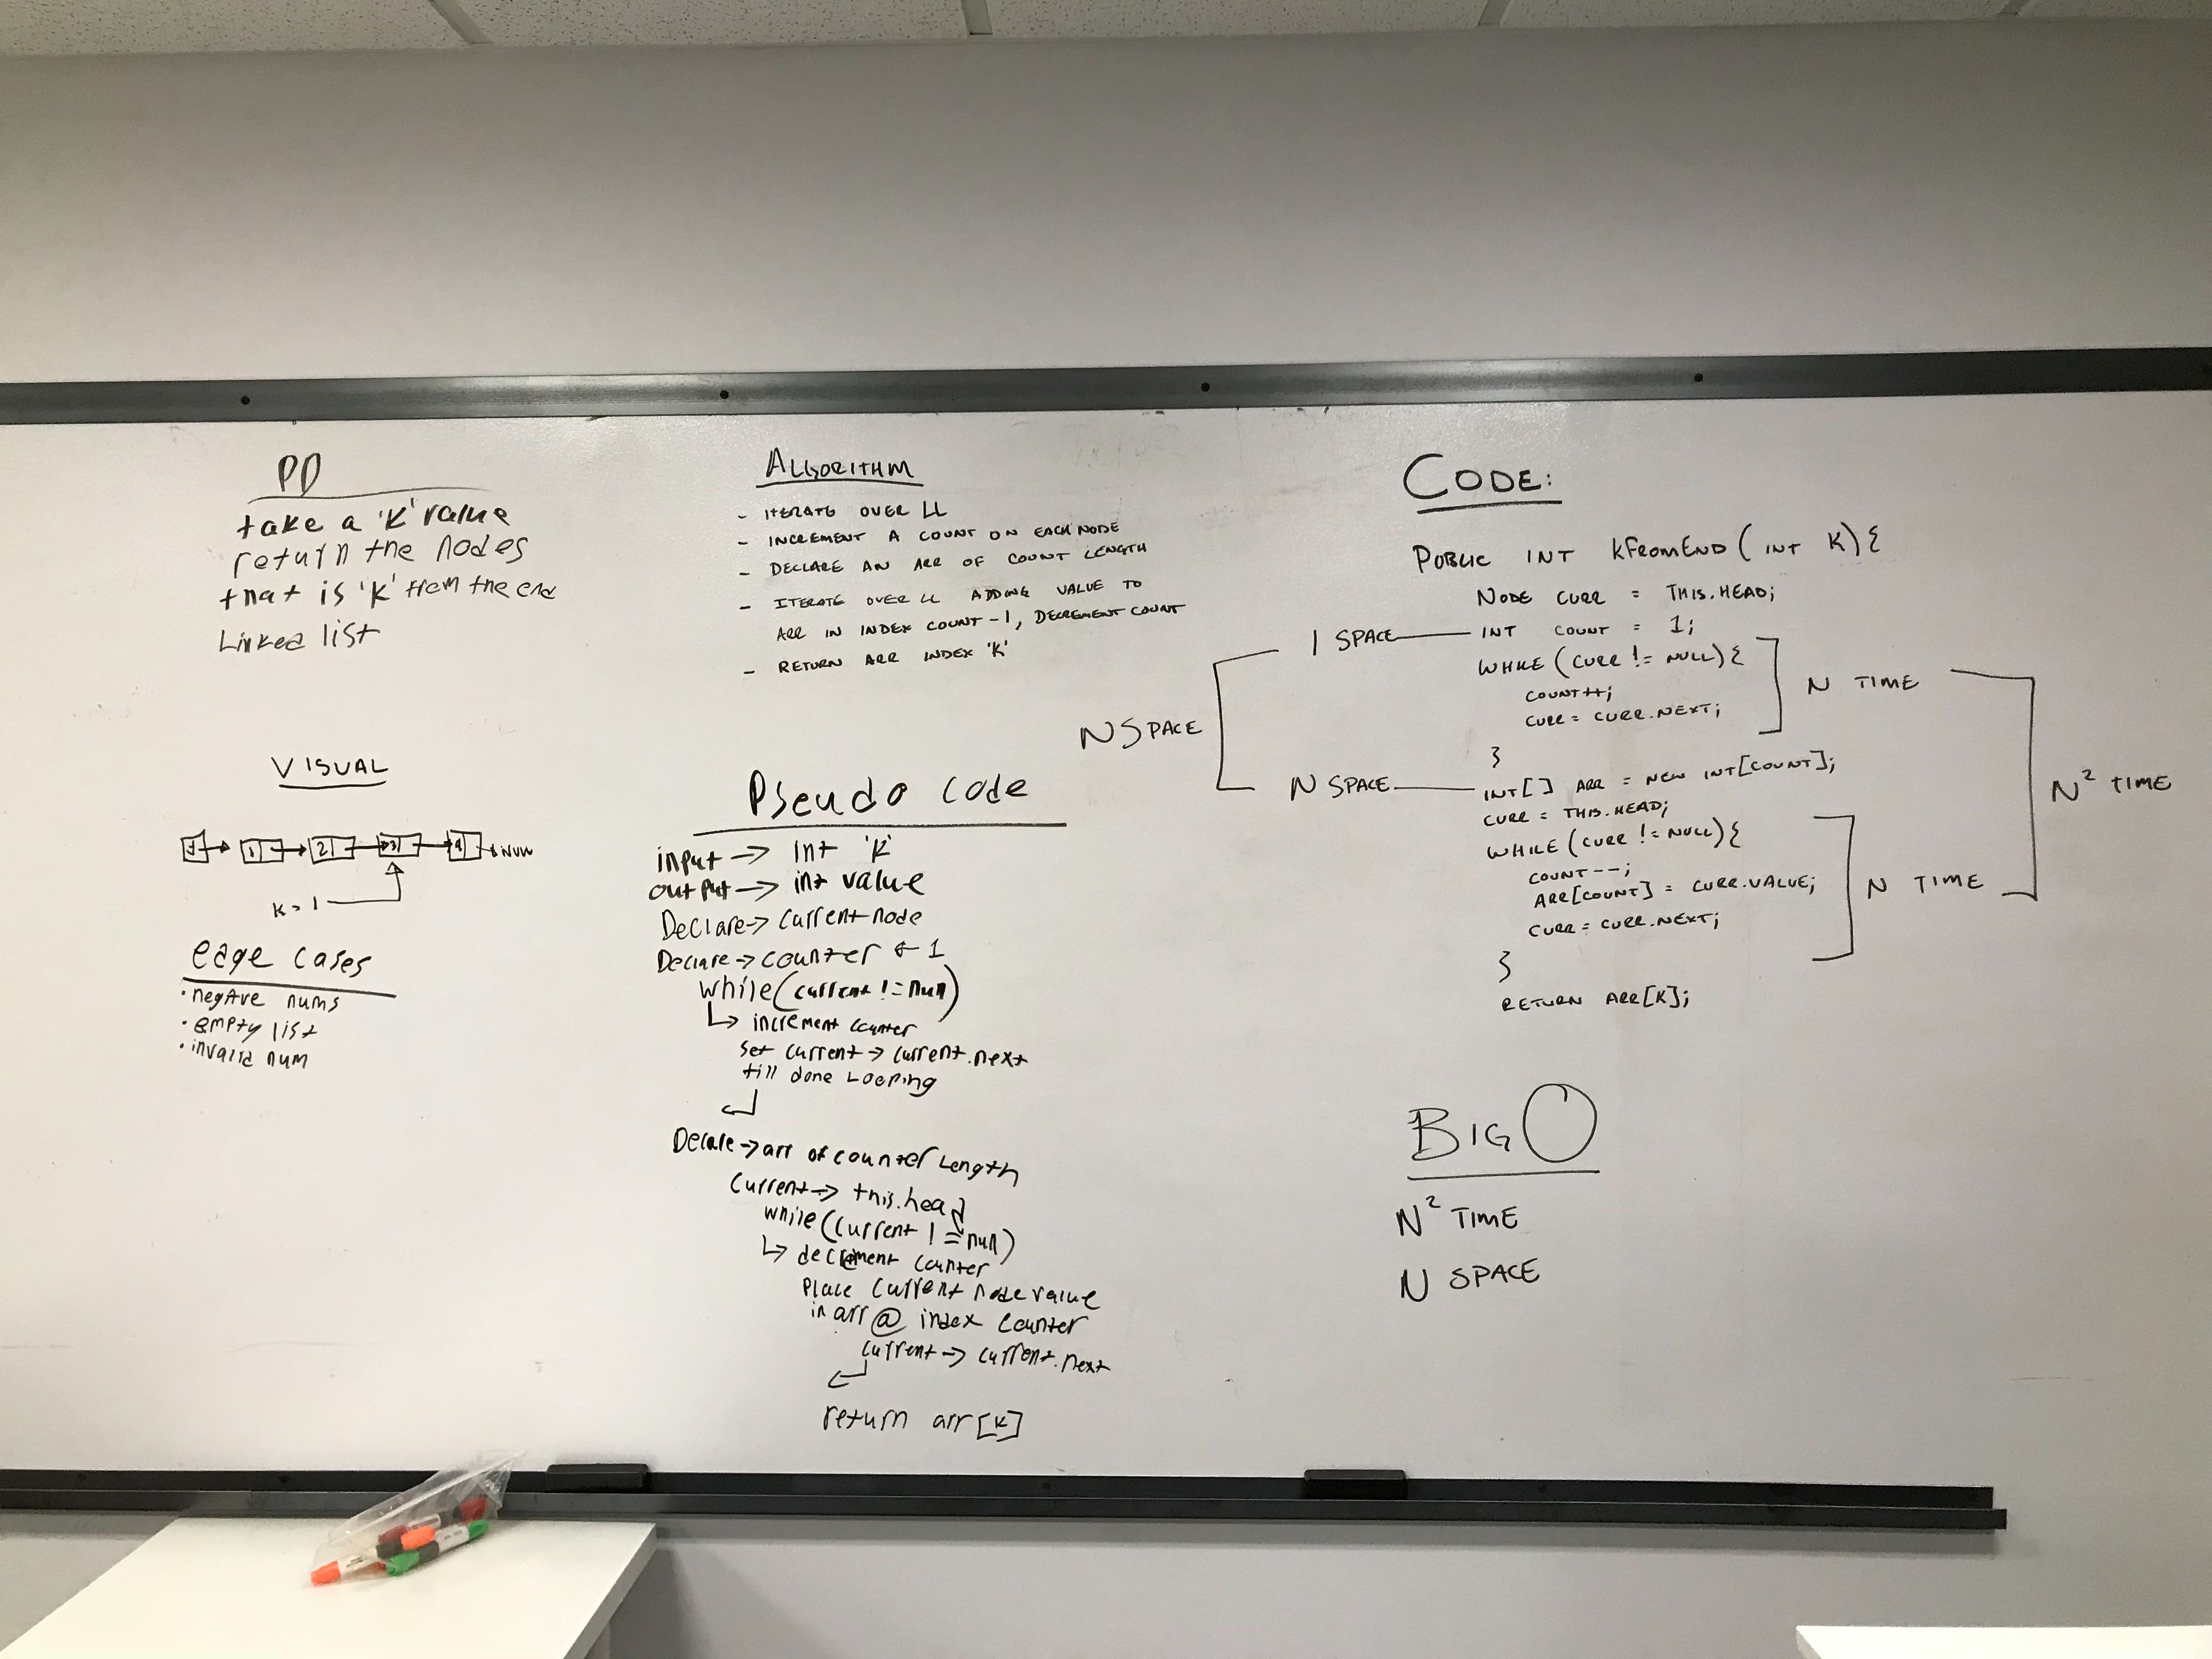 PD
take a 'K' value
return the nodes
that is 'K' from the end
Linked list
VISUAL
1
2
3
4
NULL
K = 1
edge cases
• negAve nums
• empty list
• invalid num
ALGORITHM
- ITERATE OVER LL
- INCREMENT A COUNT ON EACH NODE
- DECLARE AN ARR OF COUNT LENGTH
- ITERATE OVER LL ADDING VALUE TO
ARR IN INDEX COUNT -1, DECREMENT COUNT
- RETURN ARR INDEX 'K'
Pseudo code
input → int 'K'
output → int value
Declare → current node
Declare → counter ← 1
while(current != null)
↳ increment counter
set current → current.next
till done Looping
↵
Declare → arr of counter Length
Current → this.head
while(current != null)
↳ decrement counter
Place current node value
in arr @ index counter
current → current.next
↵
return arr[K]
CODE:
PUBLIC INT KFROMEND(INT K){
NODE CURR = THIS.HEAD;
1 SPACE — INT COUNT = 1;
WHILE (CURR != NULL){
COUNT++;
CURR = CURR.NEXT;
}
N TIME
N SPACE
N SPACE — INT[] ARR = NEW INT[COUNT];
CURR = THIS.HEAD;
WHILE (CURR != NULL){
COUNT--;
ARR[COUNT] = CURR.VALUE;
CURR = CURR.NEXT;
}
N TIME
N² TIME
RETURN ARR[K];
BIG O
N² TIME
N SPACE